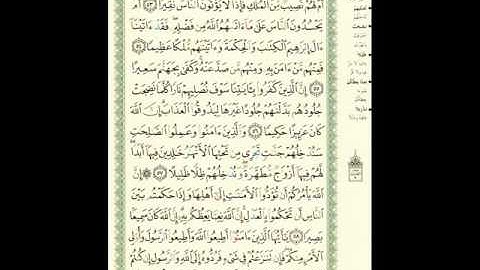 أَمْ لَهُمْ نَصِيبٌ مِّنَ ٱلْمُلْكِ فَإِذًا لَّا يُؤْتُونَ ٱلنَّاسَ نَقِيرًا ٥٣ أَمْ
يَحْسُدُونَ ٱلنَّاسَ عَلَىٰ مَآ ءَاتَىٰهُمُ ٱللَّهُ مِن فَضْلِهِۦ فَقَدْ ءَاتَيْنَآ
ءَالَ إِبْرَٰهِيمَ ٱلْكِتَٰبَ وَٱلْحِكْمَةَ وَءَاتَيْنَٰهُم مُّلْكًا عَظِيمًا ٥٤
فَمِنْهُم مَّنْ ءَامَنَ بِهِۦ وَمِنْهُم مَّن صَدَّ عَنْهُ وَكَفَىٰ بِجَهَنَّمَ سَعِيرًا
٥٥ إِنَّ ٱلَّذِينَ كَفَرُوا۟ بِـَٔايَٰتِنَا سَوْفَ نُصْلِيهِمْ نَارًا كُلَّمَا نَضِجَتْ
جُلُودُهُم بَدَّلْنَٰهُمْ جُلُودًا غَيْرَهَا لِيَذُوقُوا۟ ٱلْعَذَابَ إِنَّ ٱللَّهَ
كَانَ عَزِيزًا حَكِيمًا ٥٦ وَٱلَّذِينَ ءَامَنُوا۟ وَعَمِلُوا۟ ٱلصَّٰلِحَٰتِ
سَنُدْخِلُهُمْ جَنَّٰتٍ تَجْرِى مِن تَحْتِهَا ٱلْأَنْهَٰرُ خَٰلِدِينَ فِيهَآ أَبَدًا
لَّهُمْ فِيهَآ أَزْوَٰجٌ مُّطَهَّرَةٌ وَنُدْخِلُهُمْ ظِلًّا ظَلِيلًا ٥٧ ۞ إِنَّ
ٱللَّهَ يَأْمُرُكُمْ أَن تُؤَدُّوا۟ ٱلْأَمَٰنَٰتِ إِلَىٰٓ أَهْلِهَا وَإِذَا حَكَمْتُم بَيْنَ
ٱلنَّاسِ أَن تَحْكُمُوا۟ بِٱلْعَدْلِ إِنَّ ٱللَّهَ نِعِمَّا يَعِظُكُم بِهِۦٓ إِنَّ ٱللَّهَ كَانَ سَمِيعًۢا
بَصِيرًا ٥٨ يَٰٓأَيُّهَا ٱلَّذِينَ ءَامَنُوٓا۟ أَطِيعُوا۟ ٱللَّهَ وَأَطِيعُوا۟ ٱلرَّسُولَ وَأُو۟لِى
ٱلْأَمْرِ مِنكُمْ فَإِن تَنَٰزَعْتُمْ فِى شَىْءٍ فَرُدُّوهُ إِلَى ٱللَّهِ وَٱلرَّسُولِ إِن كُنتُمْ